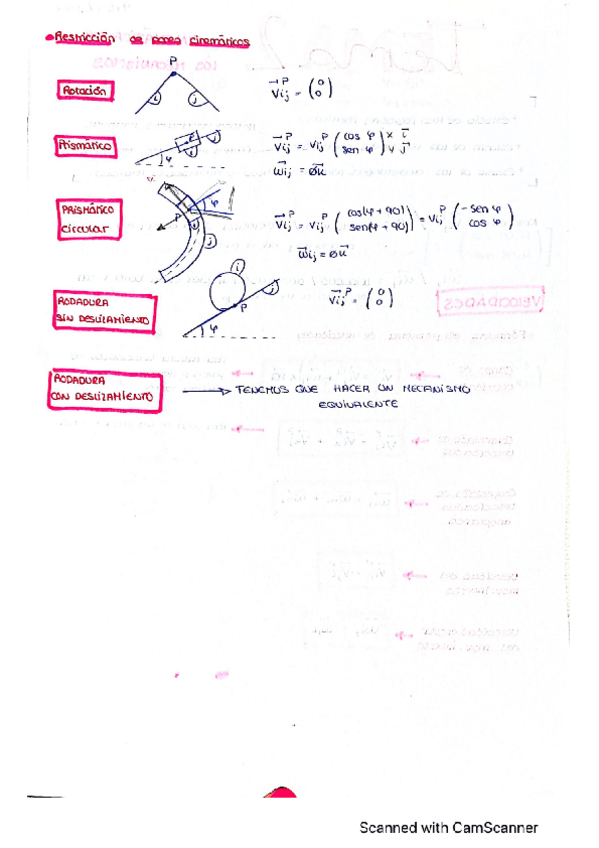 Restricción de pares cinemáticos
P
Rotación
i j
V⃗ij^P = (0 0)
Prismático
i j φ
V⃗ij^P = Vij^P (cos φ sen φ) x i⃗ y j⃗
ω⃗ij = Øu⃗
PRISMÁTICO
circular
P φ j
V⃗ij^P = Vij^P (cos(φ + 90) sen(φ + 90)) = Vij^P (-sen φ cos φ)
ω⃗ij = Øu⃗
RODADURA
SIN DESLIZAMIENTO
i j P φ
V⃗ij^P = (0 0)
RODADURA
CON DESLIZAMIENTO
→ TENEMOS QUE HACER UN MECANISMO
EQUIVALENTE
Scanned with CamScanner